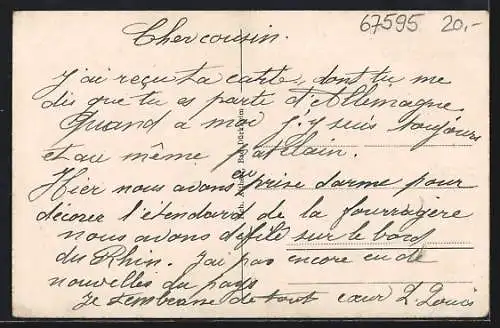 67595 20,-
Cher cousin.
J'ai reçu ta carte, dont tu me
dis que tu es parte d'Allemagne.
Quand a moi j'y suis toujours
et au même patelain.
Hier nous avons eu prise darme pour
décorer l'étendard de la fourragere
nous avons défilé sur le bord
du Rhin. J'ai pas encore eu de
nouvelles du pays
Je t'embrasse de tout cœur L. Louis